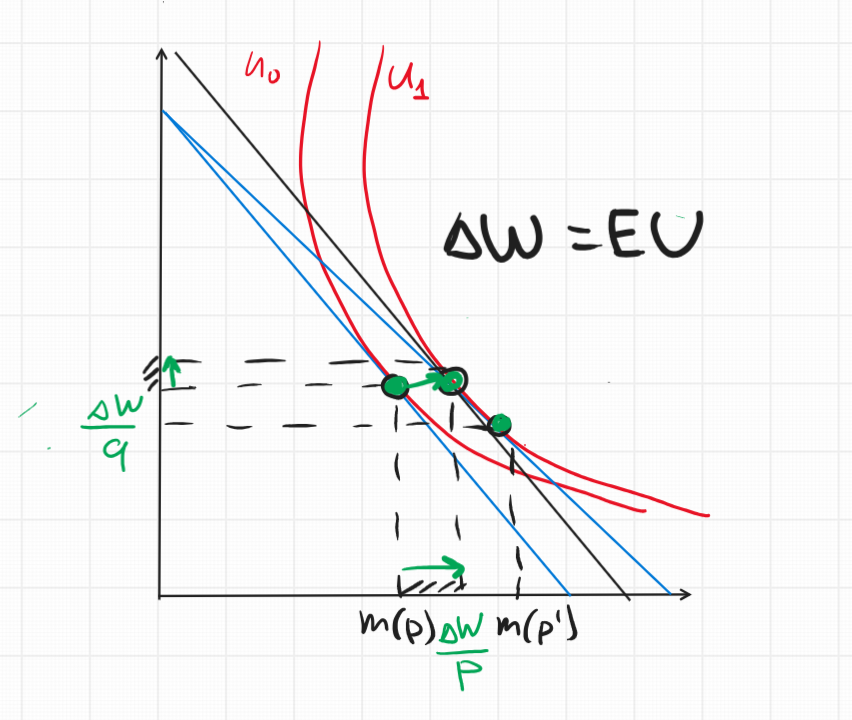 u₀
u₁
ΔW = EU
ΔW
q
m(p) ΔW m(p')
p